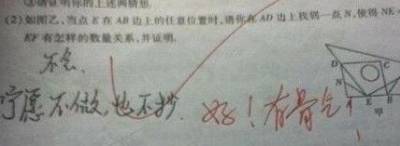 ③请证明你的上述两猜想.
(2)如图乙,当点 E 在 AB 边上的任意位置时,请你在 AD 边上找到一点 N,使得 NE=
EF 有怎样的数量关系,并证明.
不会.
宁愿不做,也不抄. 好!有骨气!
D C
N
A E B
甲